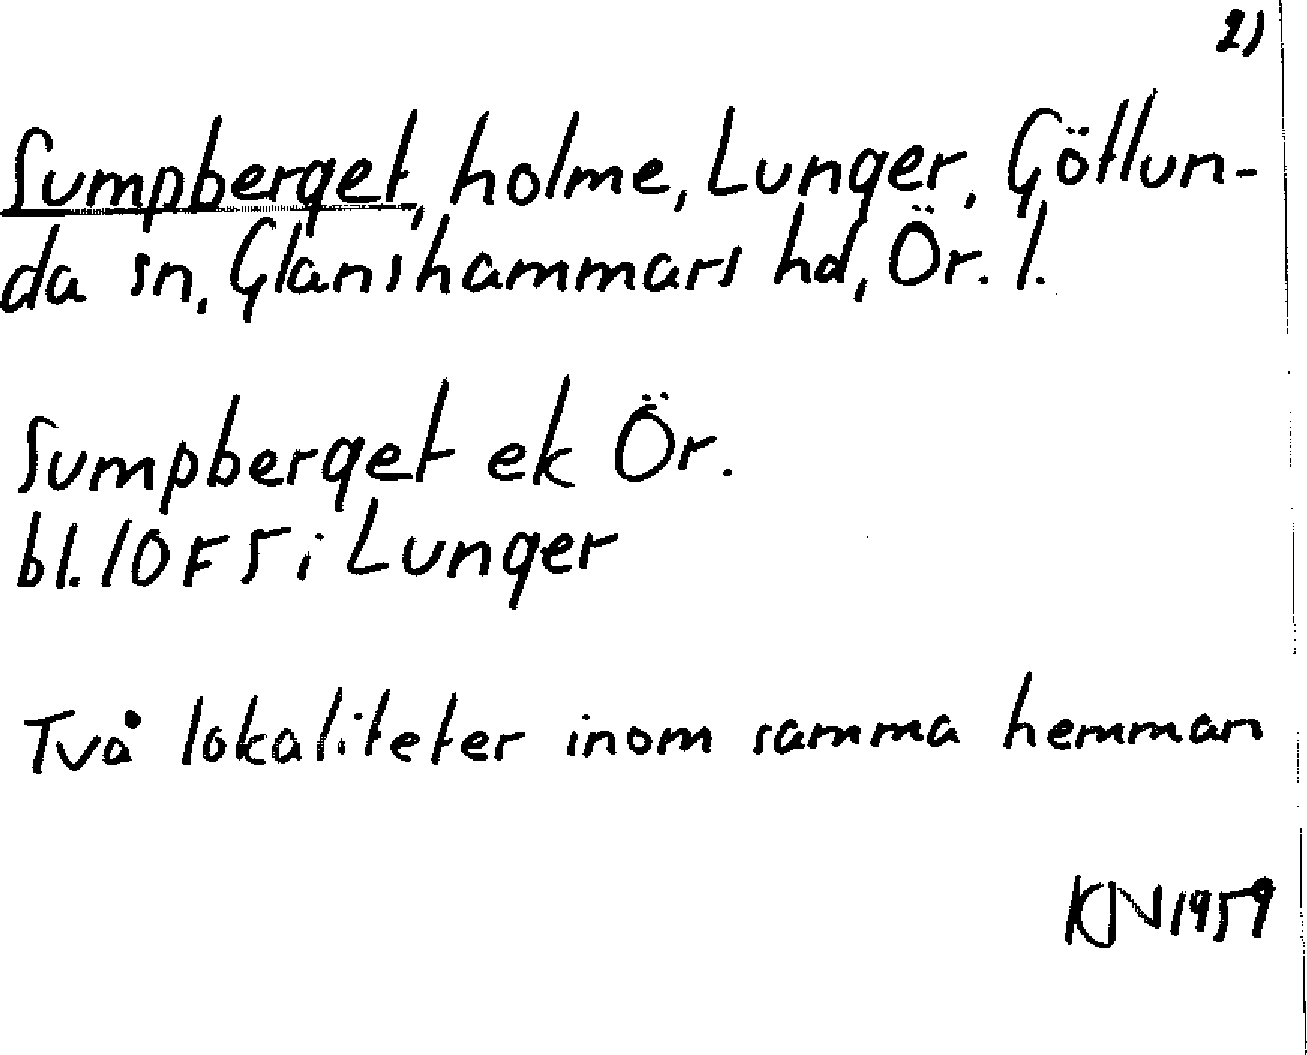 2)
Sumpberget, holme, Lunger, Götlun-
da sn, Glanshammars hd, Ör. l.
Sumpberget ek Ör.
bl. 10F5 i Lunger
Två lokaliteter inom samma hemman
KJN 1959